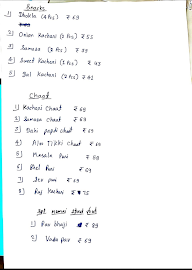 Snacks
1) Dhokla (4 Pcs) ₹ 69
2) Onion Kachori (2 Pcs) ₹ 55
3) Samosa (2 Pcs) ₹ 39
4) Sweet Kachori (2 Pcs) ₹ 43
5) Dal Kachori (2 Pcs) ₹ 42
Chaat
1) Kachori Chaat ₹ 69
2) Samosa Chaat ₹ 69
3) Dahi papdi chaat ₹ 69
4) Alu Tikki chaat ₹ 69
5) Masala Puri ₹ 59
6) Bhel Puri ₹ 69
7) Sev puri ₹ 69
8) Raj Kachori ₹ 75
mumbai street food
1) Pav bhaji ₹ 89
2) Vada pav ₹ 69